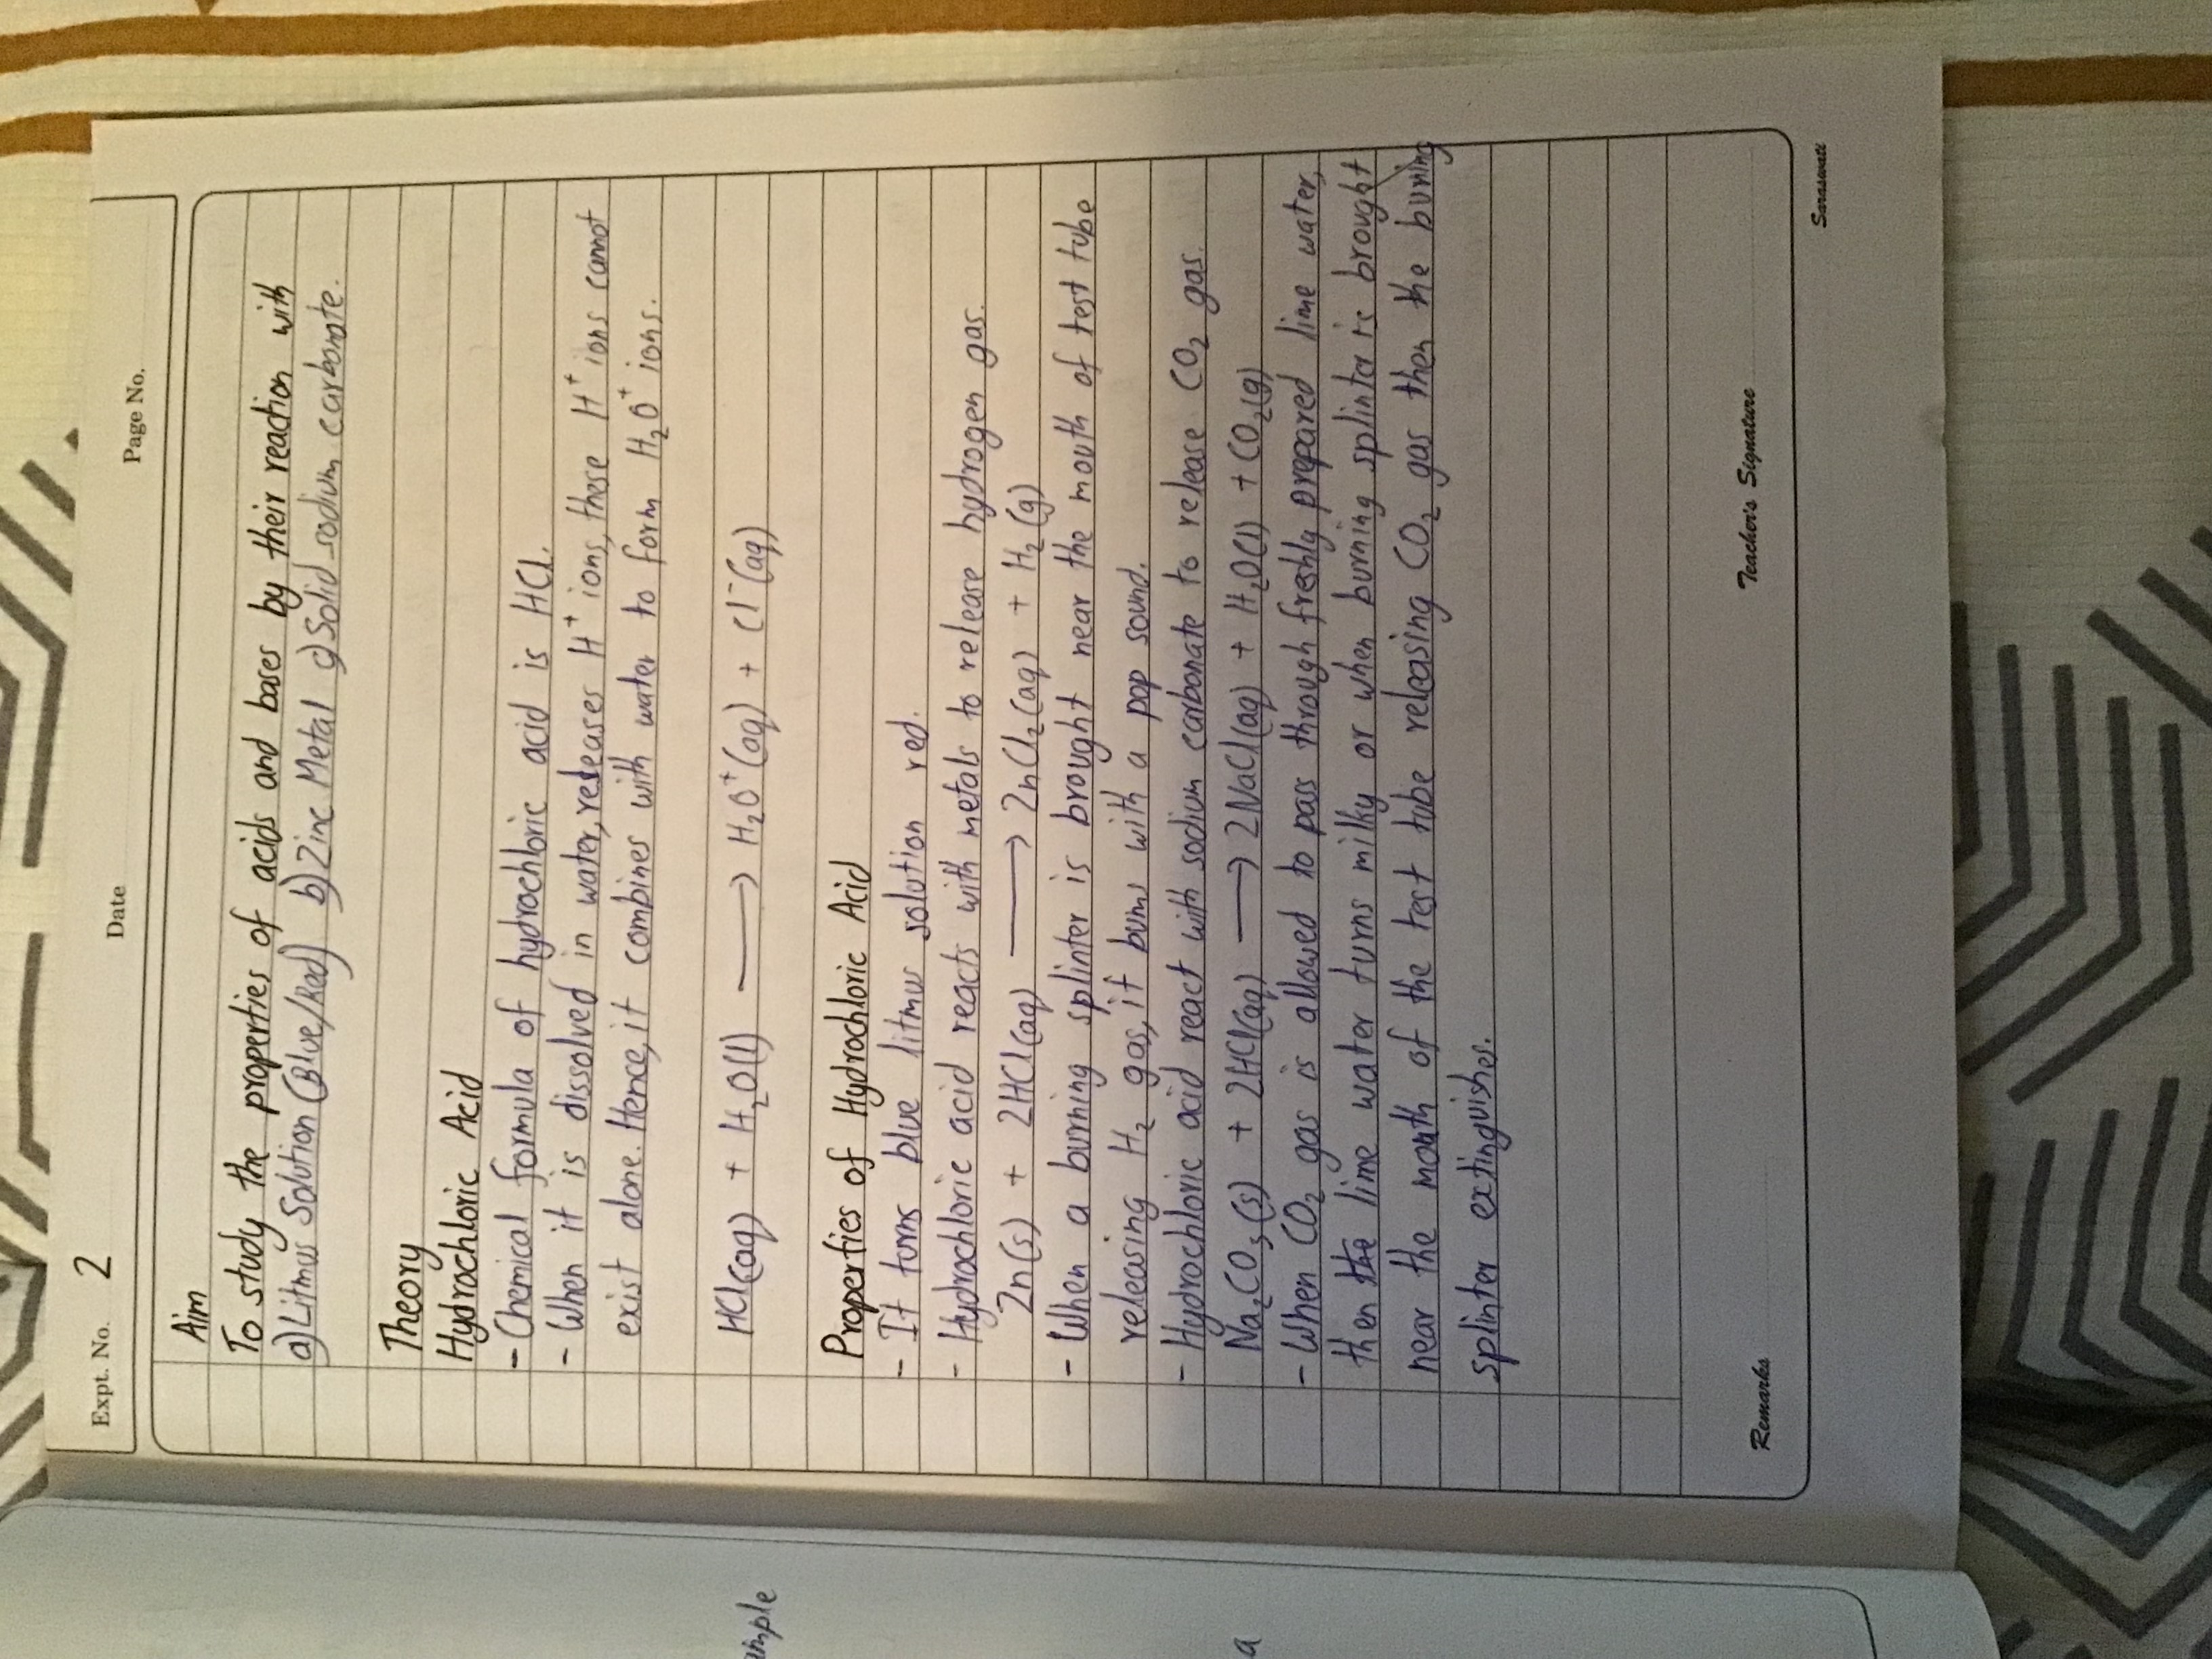 Expt. No. 2
Date
Page No.
Aim
To study the properties of acids and bases by their reaction with
a) Litmus Solution (Blue/Red) b) Zinc Metal c) Solid sodium carbonate.
Theory
Hydrochloric Acid
- Chemical formula of hydrochloric acid is HCl.
- When it is dissolved in water, releases H⁺ ions, these H⁺ ions cannot
exist alone. Hence, it combines with water to form H₂O⁺ ions.
HCl(aq) + H₂O(l) ⟶ H₂O⁺(aq) + Cl⁻(aq)
ample
Properties of Hydrochloric Acid
- It turns blue litmus solution red.
- Hydrochloric acid reacts with metals to release hydrogen gas.
Zn(s) + 2HCl(aq) ⟶ ZnCl₂(aq) + H₂(g)
- When a burning splinter is brought near the mouth of test tube
releasing H₂ gas, it burns with a pop sound.
- Hydrochloric acid react with sodium carbonate to release CO₂ gas.
a
Na₂CO₃(s) + 2HCl(aq) ⟶ 2NaCl(aq) + H₂O(l) + CO₂(g)
- When CO₂ gas is allowed to pass through freshly prepared lime water,
then the lime water turns milky or when burning splinter is brought
near the mouth of the test tube releasing CO₂ gas then the buring
splinter extinguishes.
Remarks
Teacher's Signature
Saraswati